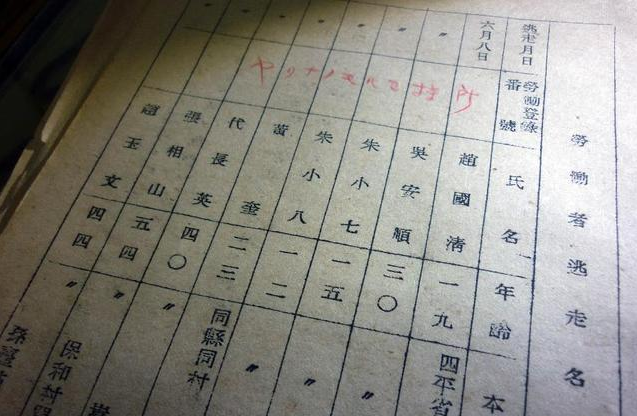 勞働者逃走名
逃走月日 勞働登錄番號 氏名 年齡 本
六月八日 趙國淸 一九 四平省
吳安順 三〇 〃
朱小七 一五 〃
朱小八 一二 〃
黃奎 二三 同縣同村
代長英 四〇 〃
張相山 五四 〃
趙玉文 四四 〃 保和村
所持スルモノナリヤ